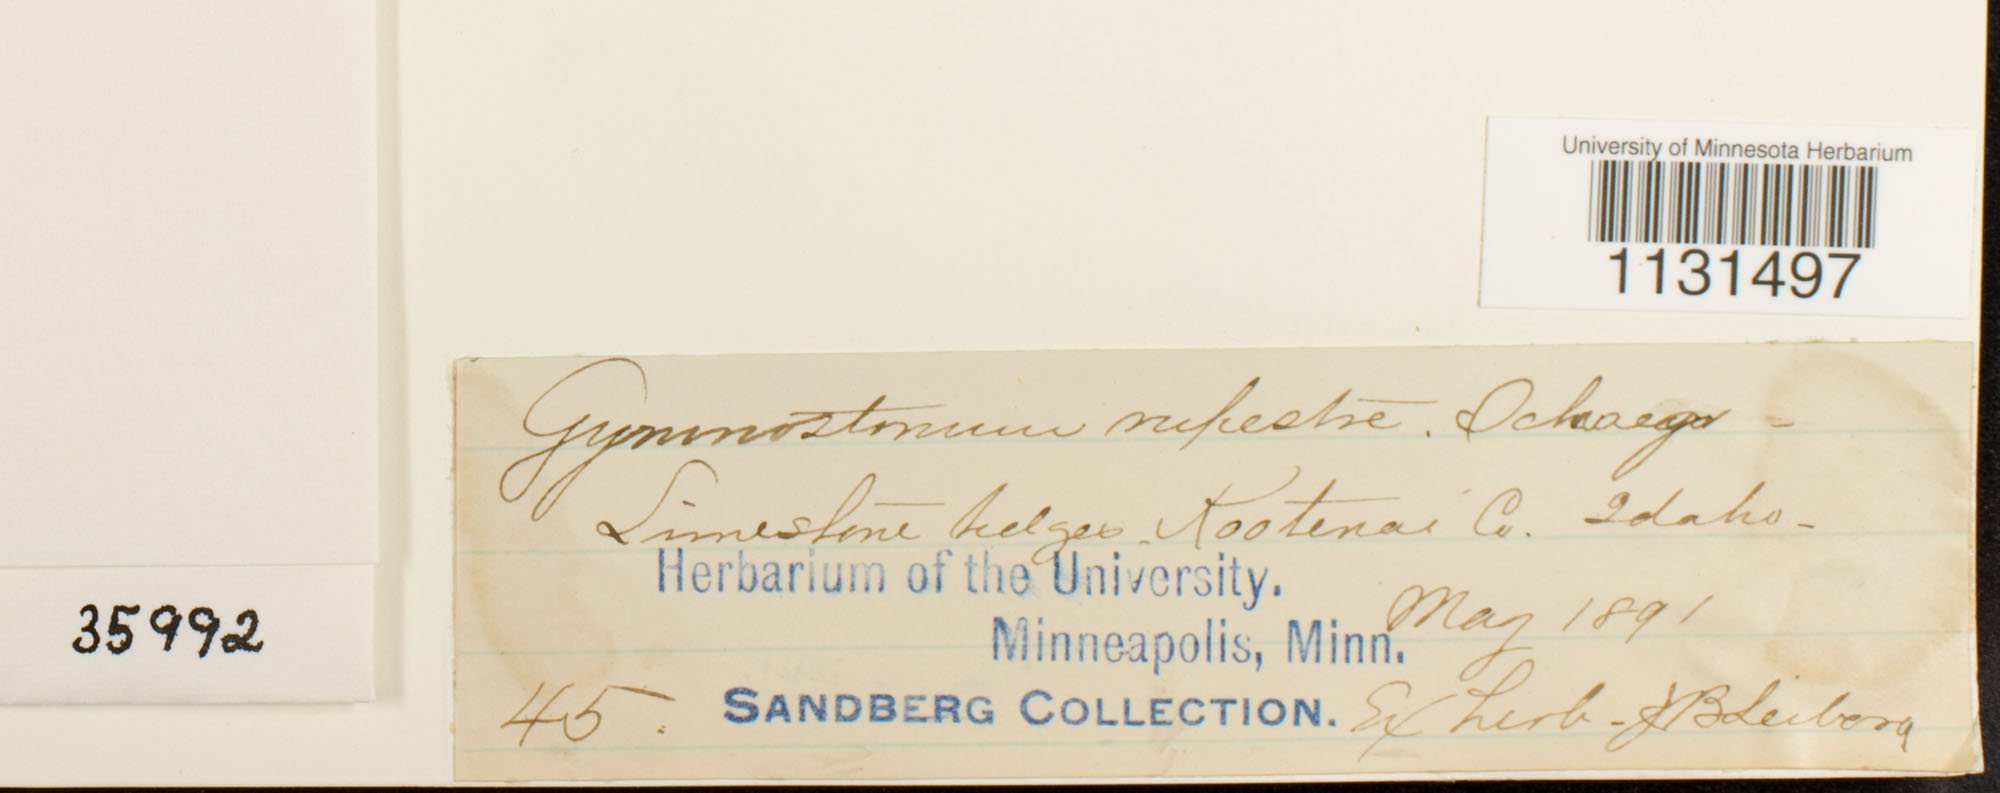 University of Minnesota Herbarium
1131497
Gymnostomum rupestre. Schaegr -
Limestone ledges. Kootenai Co. Idaho -
Herbarium of the University.
May 1891
Minneapolis, Minn.
45. SANDBERG COLLECTION. Ex herb - JB Leiberg
35992